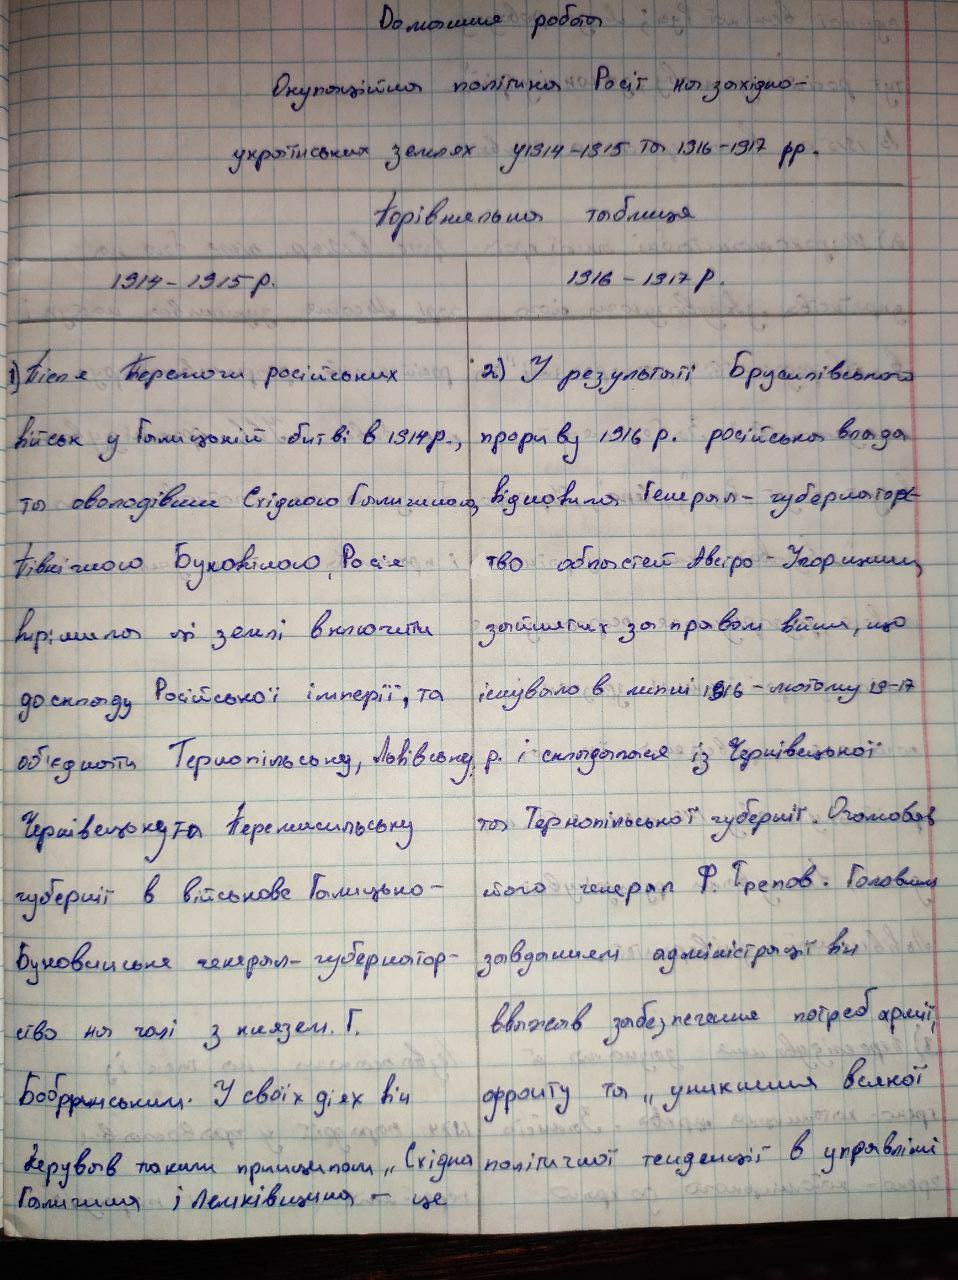 Домашня робота
Окупаційна політика Росії на західно-
українських землях у 1914-1915 та 1916-1917 рр.
Порівняльна таблиця
1914-1915 р.
1)Після Перемоги російських
військ у Галицькій битві в 1914р.,
та оволодівши Східною Галичиною,
Північною Буковиною, Росія
вирішила ці землі включити
до складу Російської імперії, та
об'єднати Тернопільську, Львівську,
Чернівецьку та Перемисльську
губернії в військове Галицько-
Буковинське генерал-губернатор-
ство на чолі з князем. Г.
Бобринським. У своїх діях він
керував таким принципом „Східна
Галичина і Лемківщина - це
1916-1917 р.
2) У результаті Брусилівського
прориву 1916 р. російська влада
відновила Генерал-губернаторс-
тво областей Австро-Угорщини,
зайнятих за правом війни, що
існувало в липні 1916-лютому 19-17
р. і складалася із Чернівецької
та Тернопільської губернії. Очолював
його генерал Ф. Трепов. Головним
завданням адміністрації він
вважав забезпечення потреб армії,
фронту та „уникнення всякої
політичної тенденції в управлінні